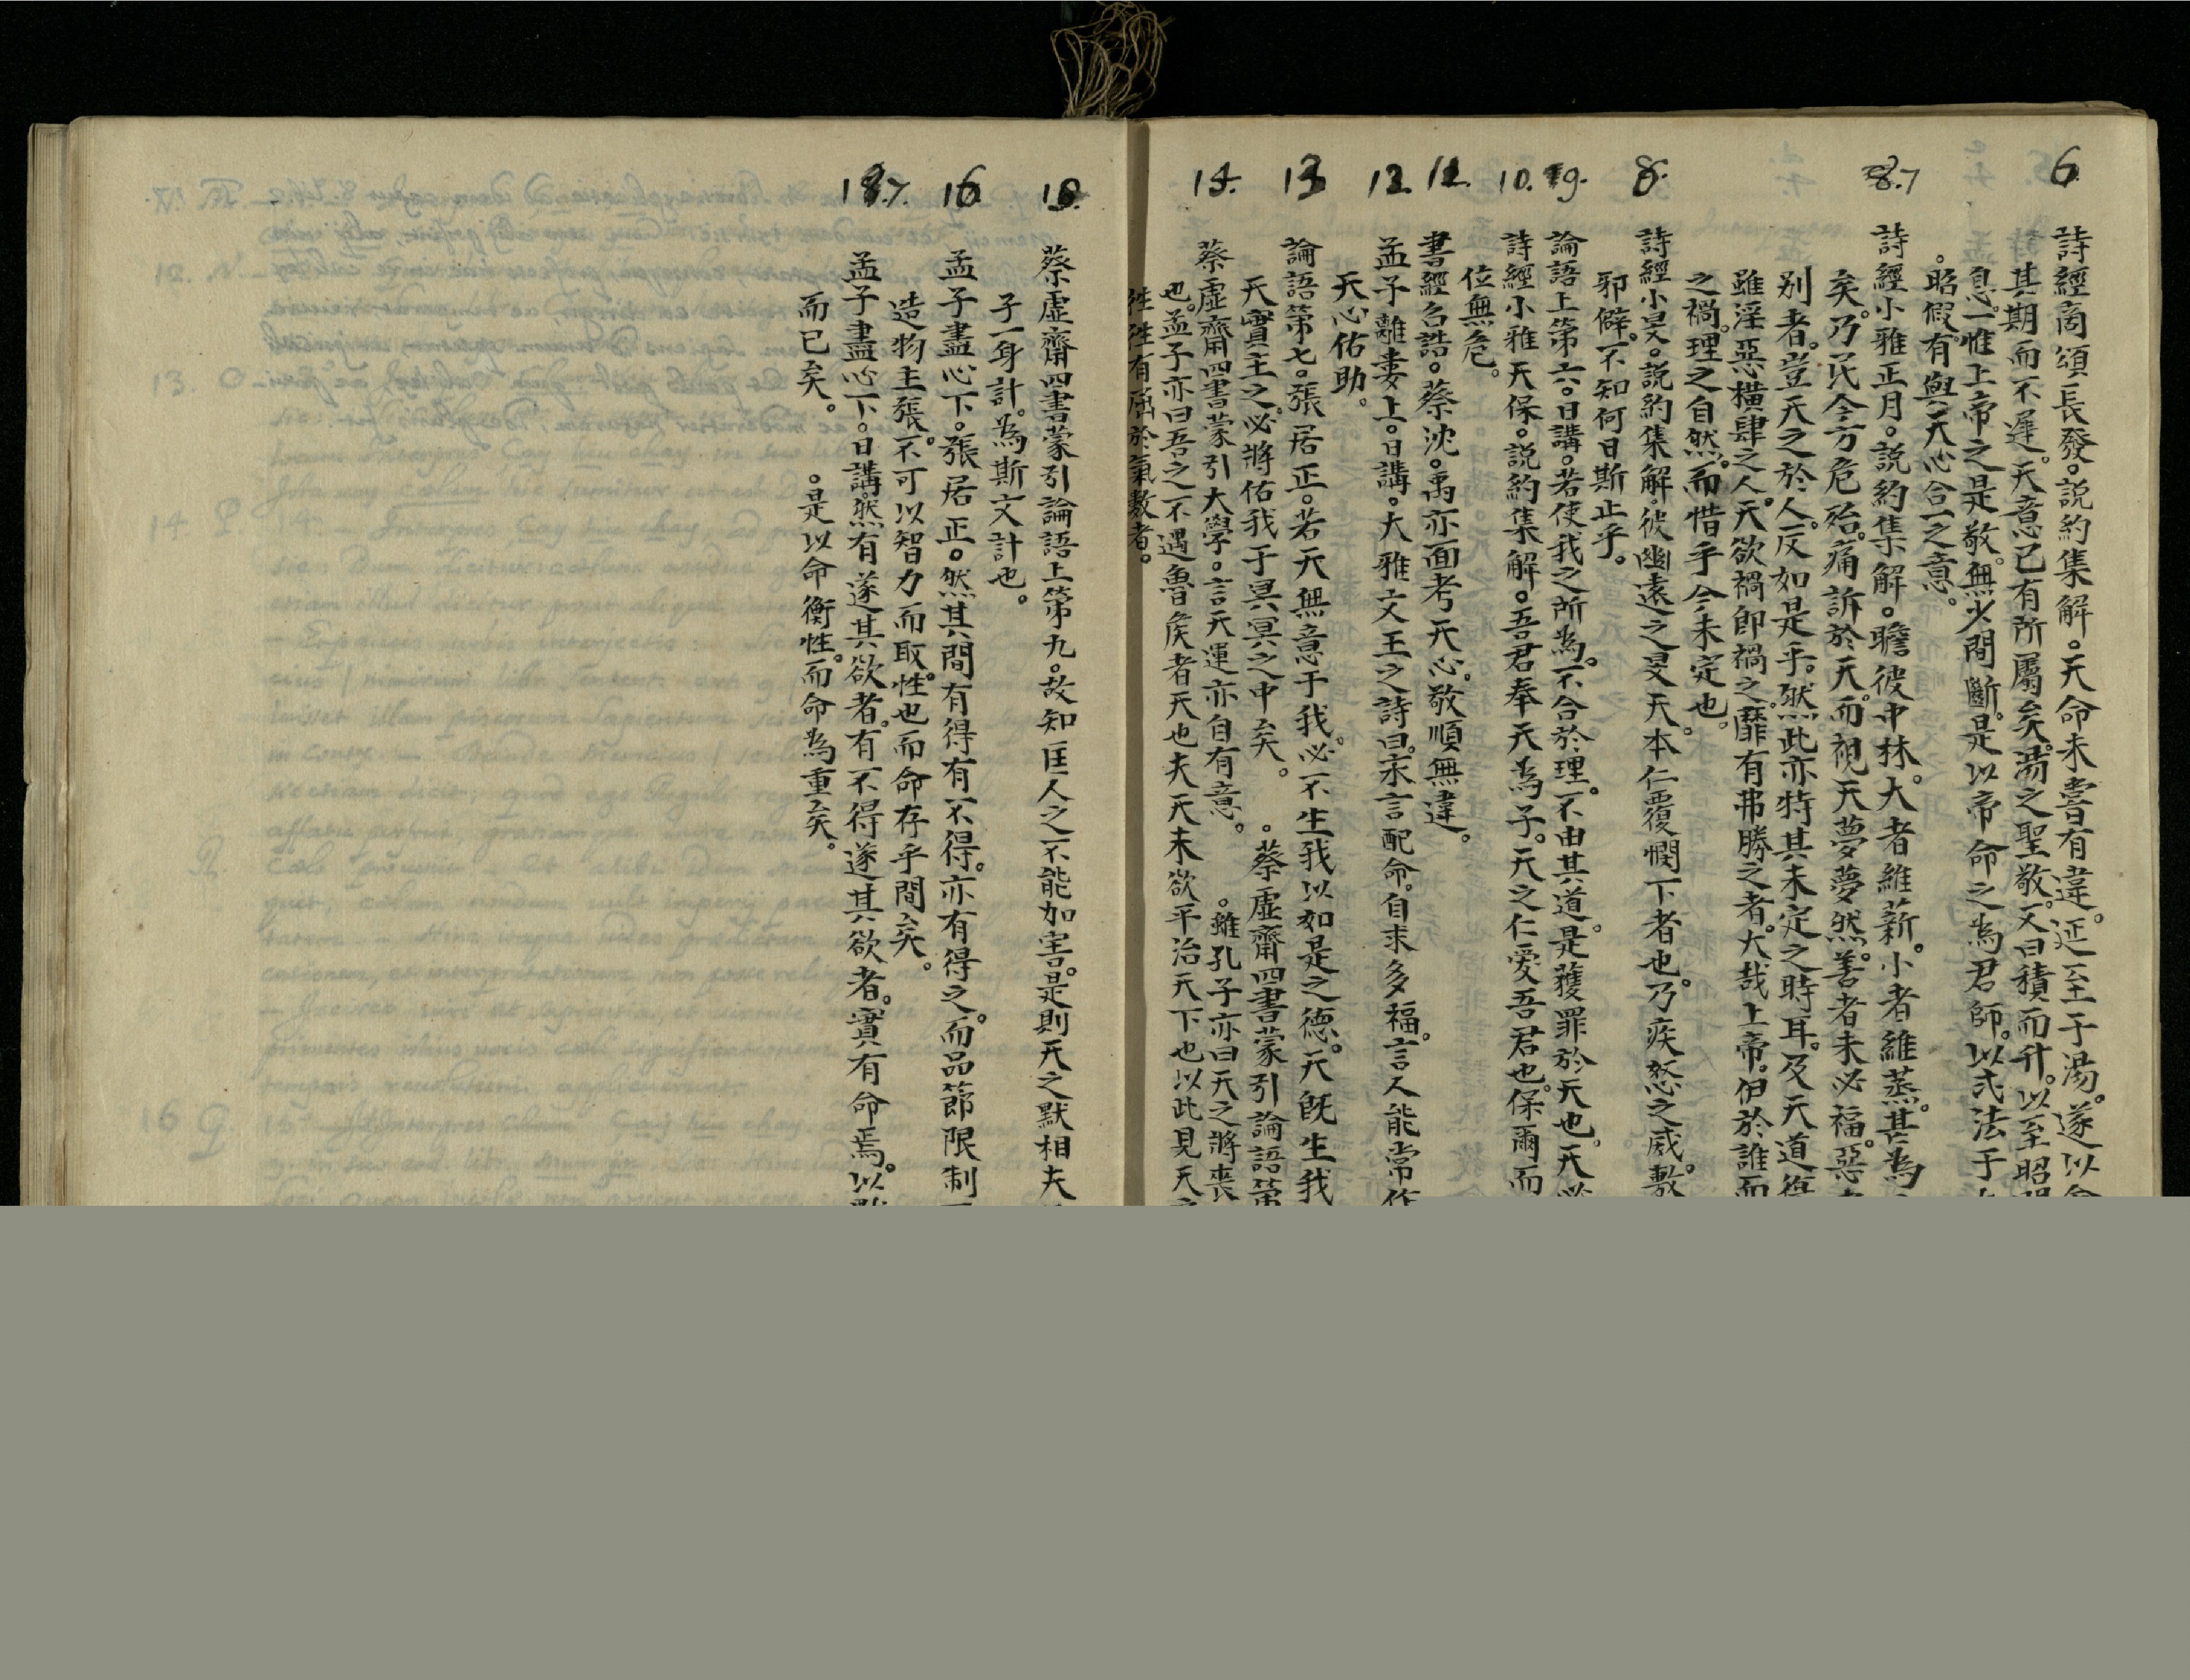 6.
詩經商頌長發。說約集解。天命未嘗有違。延至于湯。遂以
其期而不遲。天意已有所屬矣。湯之聖敬。又曰積而升。以至昭
息。一惟上帝之是敬。無少間斷。是以帝命之為君師。以式法于
。昭假。有與天心合一之意。
8.7
詩經小雅正月。說約集解。瞻彼中林。大者維薪。小者維蒸。甚為
矣。乃民今方危殆。痛訴於天。而視天夢夢然。善者未必福。惡
別者。豈天之於人。反如是乎。然此亦特其未定之時耳。及天道
雖淫惡橫肆之人。天欲禍即禍之。靡有弗勝之者。大哉上帝。伊於誰而
之禍。理之自然。而惜乎今未定也。
8.
詩經小旻。說約集解。彼幽遠之旻天。本仁覆憫下者也。乃疾怒之威。敷
邪僻。不知何日斯止乎。
9.
論語上第六。日講。若使我之所為。不合於理。不由其道。是獲罪於天也。天必
10.
詩經小雅天保。說約集解。吾君奉天為子。天之仁愛吾君也。保爾而
位無危。
11.
書經召誥。蔡沈。禹亦面考天心。敬順無違。
12.
孟子離婁上。日講。大雅文王之詩曰。永言配命。自求多福。言人能常作
天心佑助。
13
論語第七。張居正。若天無意于我。必不生我以如是之德。天既生我
天實主之。必將佑我于冥冥之中矣。 。蔡虛齋四書蒙引論語第
14.
蔡虛齋四書蒙引大學。言天運亦自有意。 。雖孔子亦曰天之將喪
也。孟子亦曰吾之不遇魯侯者天也夫天未欲平治天下也以此見天
性性有屈於氣數者。
蔡虛齋四書蒙引論語上第九。故知匡人之不能加害。是則天之默相夫
子一身計。為斯文計也。
16
孟子盡心下。張居正。然其間有得有不得。亦有得之。而品節限制
造物主張。不可以智力而取。性也而命存乎間矣。
17.
孟子盡心下。日講。然有遂其欲者。有不得遂其欲者。實有命焉。以
而已矣。 。是以命衡性。而命為重矣。